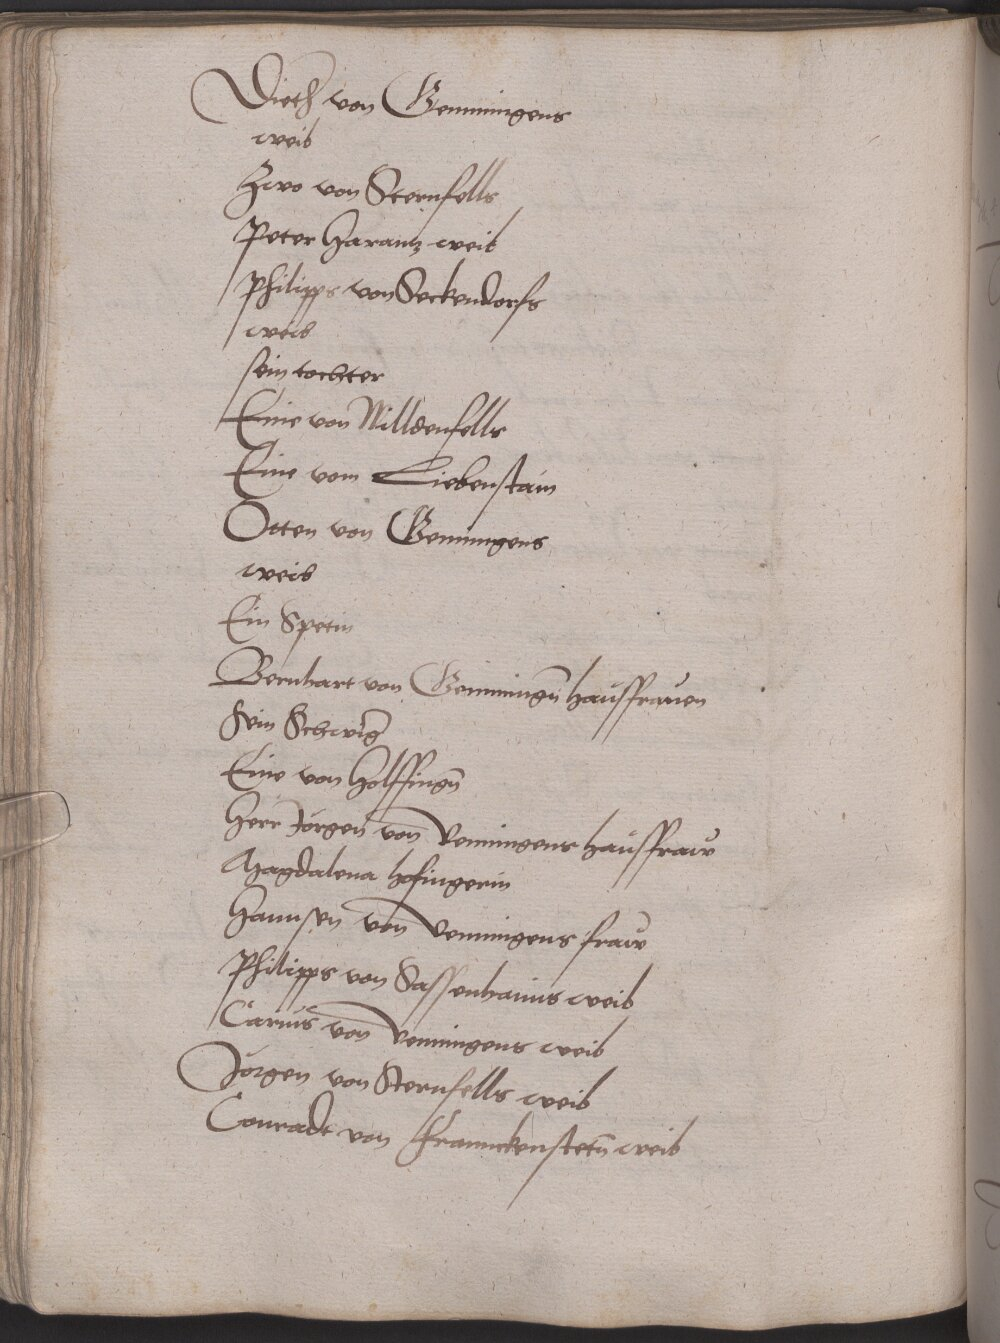 Dieth von Gemmingens
weib
Zwo von Sternfells
Peter Harantz weib
Philipps von Seckendorfs
weib
sein tochter
Eine von Milldenfells
Eine vom Liebenstain
Otten von Gemmingens
weib
Ein Spetin
Bernhart von Gemmingn̄ haußfrauen
Sein Schwig
Eine von Holffingn̄
Herr Jörgen von Venningens haußfraw
Magdalena hofingerin
Hannsen von Venningens fraw
Philipps von Sassenhaims weib
Carius von Venningens weib
Jörgen von Sternfells weib
Conradt von Franckenstein weib